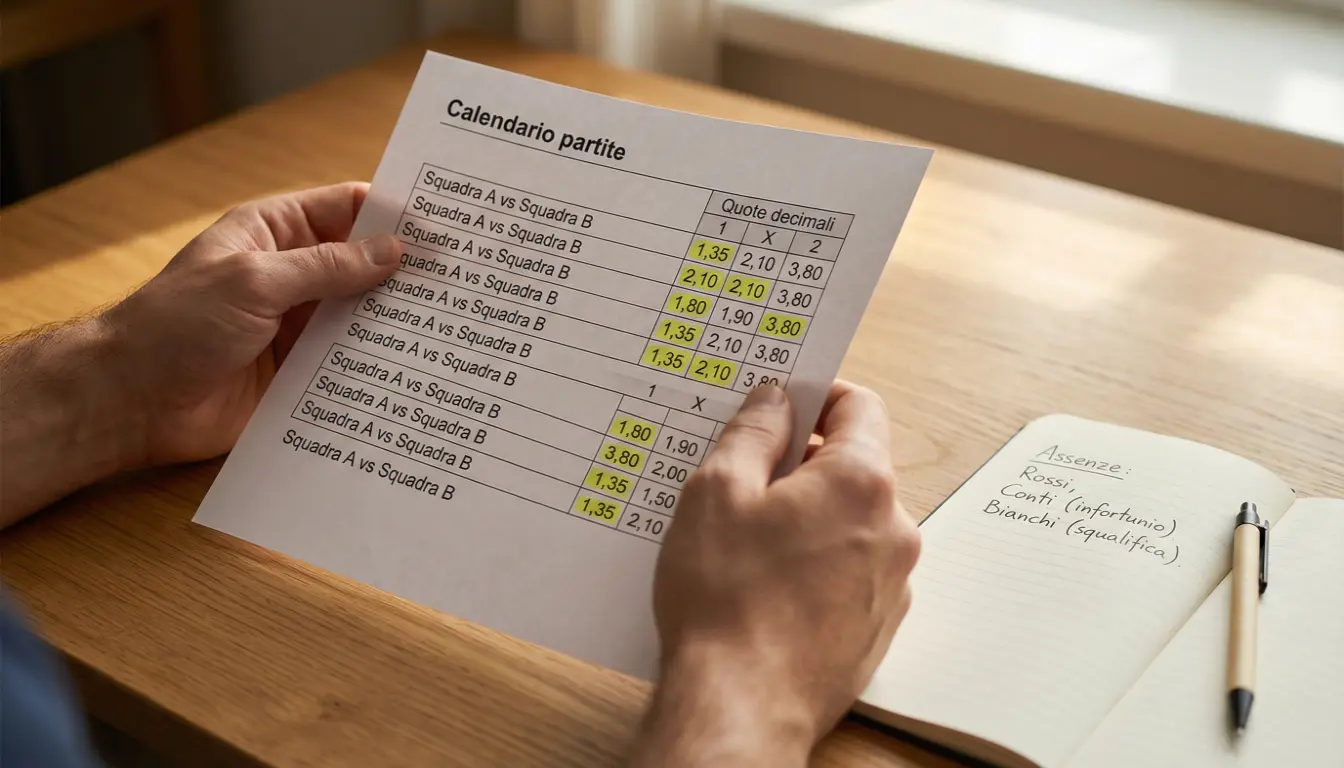 Calendario partite
Quote decimali
1 X 2
Squadra A vs Squadra B 1,35 2,10 3,80
Squadra A vs Squadra B 2,10 2,10 3,80
Squadra A vs Squadra B 1,80 1,90 3,80
quadra A vs Squadra B 1,35 2,10 3,80
Squadra A vs Squadra B 1,35 2,10 3,80
Squadra A vs Squadra B
1 X
Squadra A vs Squadra B 1,80 1,90
Squadra A vs Squadra B 3,80 2,00
Squadra A vs Squadra B 1,35 1,50
Squadra A vs Squadra B 1,35 2,10
Squadra A vs Squadra B
Assenze:
Rossi,
Conti (infortunio)
Bianchi (squalifica).